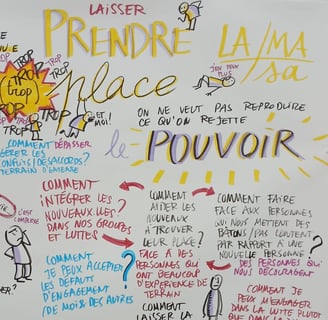 LAISSER
PRENDRE LA/MA/sa
place
TROP
TROP
TROP
TROP
trop
TROP
ET MOI!
J'EN PEUX PLUS
ON NE VEUT PAS REPRODUIRE
CE QU'ON REJETTE
le POUVOIR
COMMENT DÉPASSER
GÉRER LES
CONFLITS/DÉSACCORDS?
TERRAIN D'ENTENTE
COMMENT
INTÉGRER LES
NOUVEAUX.LLES?
DANS NOS GROUPES
ET LUTTES
COMMENT
AIDER LES
NOUVEAUX
À TROUVER
LEUR PLACE?
FACE À DES
PERSONNES QUI
ONT BEAUCOUP
D'EXPÉRIENCE DE
TERRAIN
COMMENT FAIRE
FACE AUX PERSONNES
QUI NOUS METTENT DES
BÂTONS/PAS CONTENT
PAR RAPPORT À UNE
NOUVELLE PERSONNE?
DES PERSONNES QUI
NOUS DÉCOURAGENT
C'EST
COMPLIQUÉ
COMMENT
JE PEUX ACCEPTER
LES DÉFAUTS
D'ENGAGEMENT
(DE MOI & DES AUTRES)
COMMENT
LAISSER LA
COMMENT JE
PEUX M'ENGAGER
DANS LA LUTTE PLUTÔT
QUE DANS